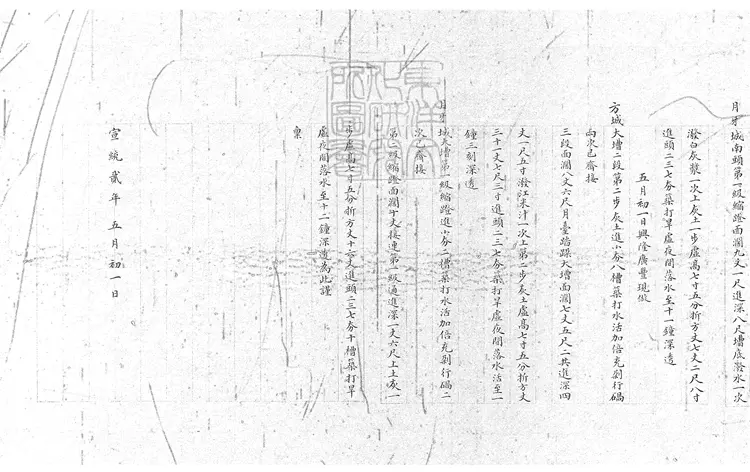 月牙城南頭第一級縮蹬面濶九丈一尺進深八尺墁底潑水一次
潑白灰漿一次上灰土一步虛高七寸五分折方丈七丈二尺八寸
進頭二三七夯築打旱虛夜間落水至十一鐘深透
五月初一日興隆廣豐現做
方城大墁二段第二步灰土進小夯八槽築打水活加倍充剁行碢
兩次已齊接
三段面濶八丈六尺月臺踏跺大墁面濶七丈五尺二共進深四
丈一尺五寸潑江米汁一次上第一步灰土虛高七寸五分折方丈
三十一丈七尺三寸進頭二三七夯築打旱虛夜間落水活至一
鐘三刻深透
月牙城大墁第一級縮蹬進小夯二槽築打水活加倍充剁行碢二
次已齊接
第二級縮蹬面濶十丈接連第一級通進深一丈六尺上土灰一
步虛高七寸五分折方丈十六丈進頭二三七夯十槽築打旱
虛夜間落水至十二鐘深透為此謹
稟
宣統貳年 五月初一日